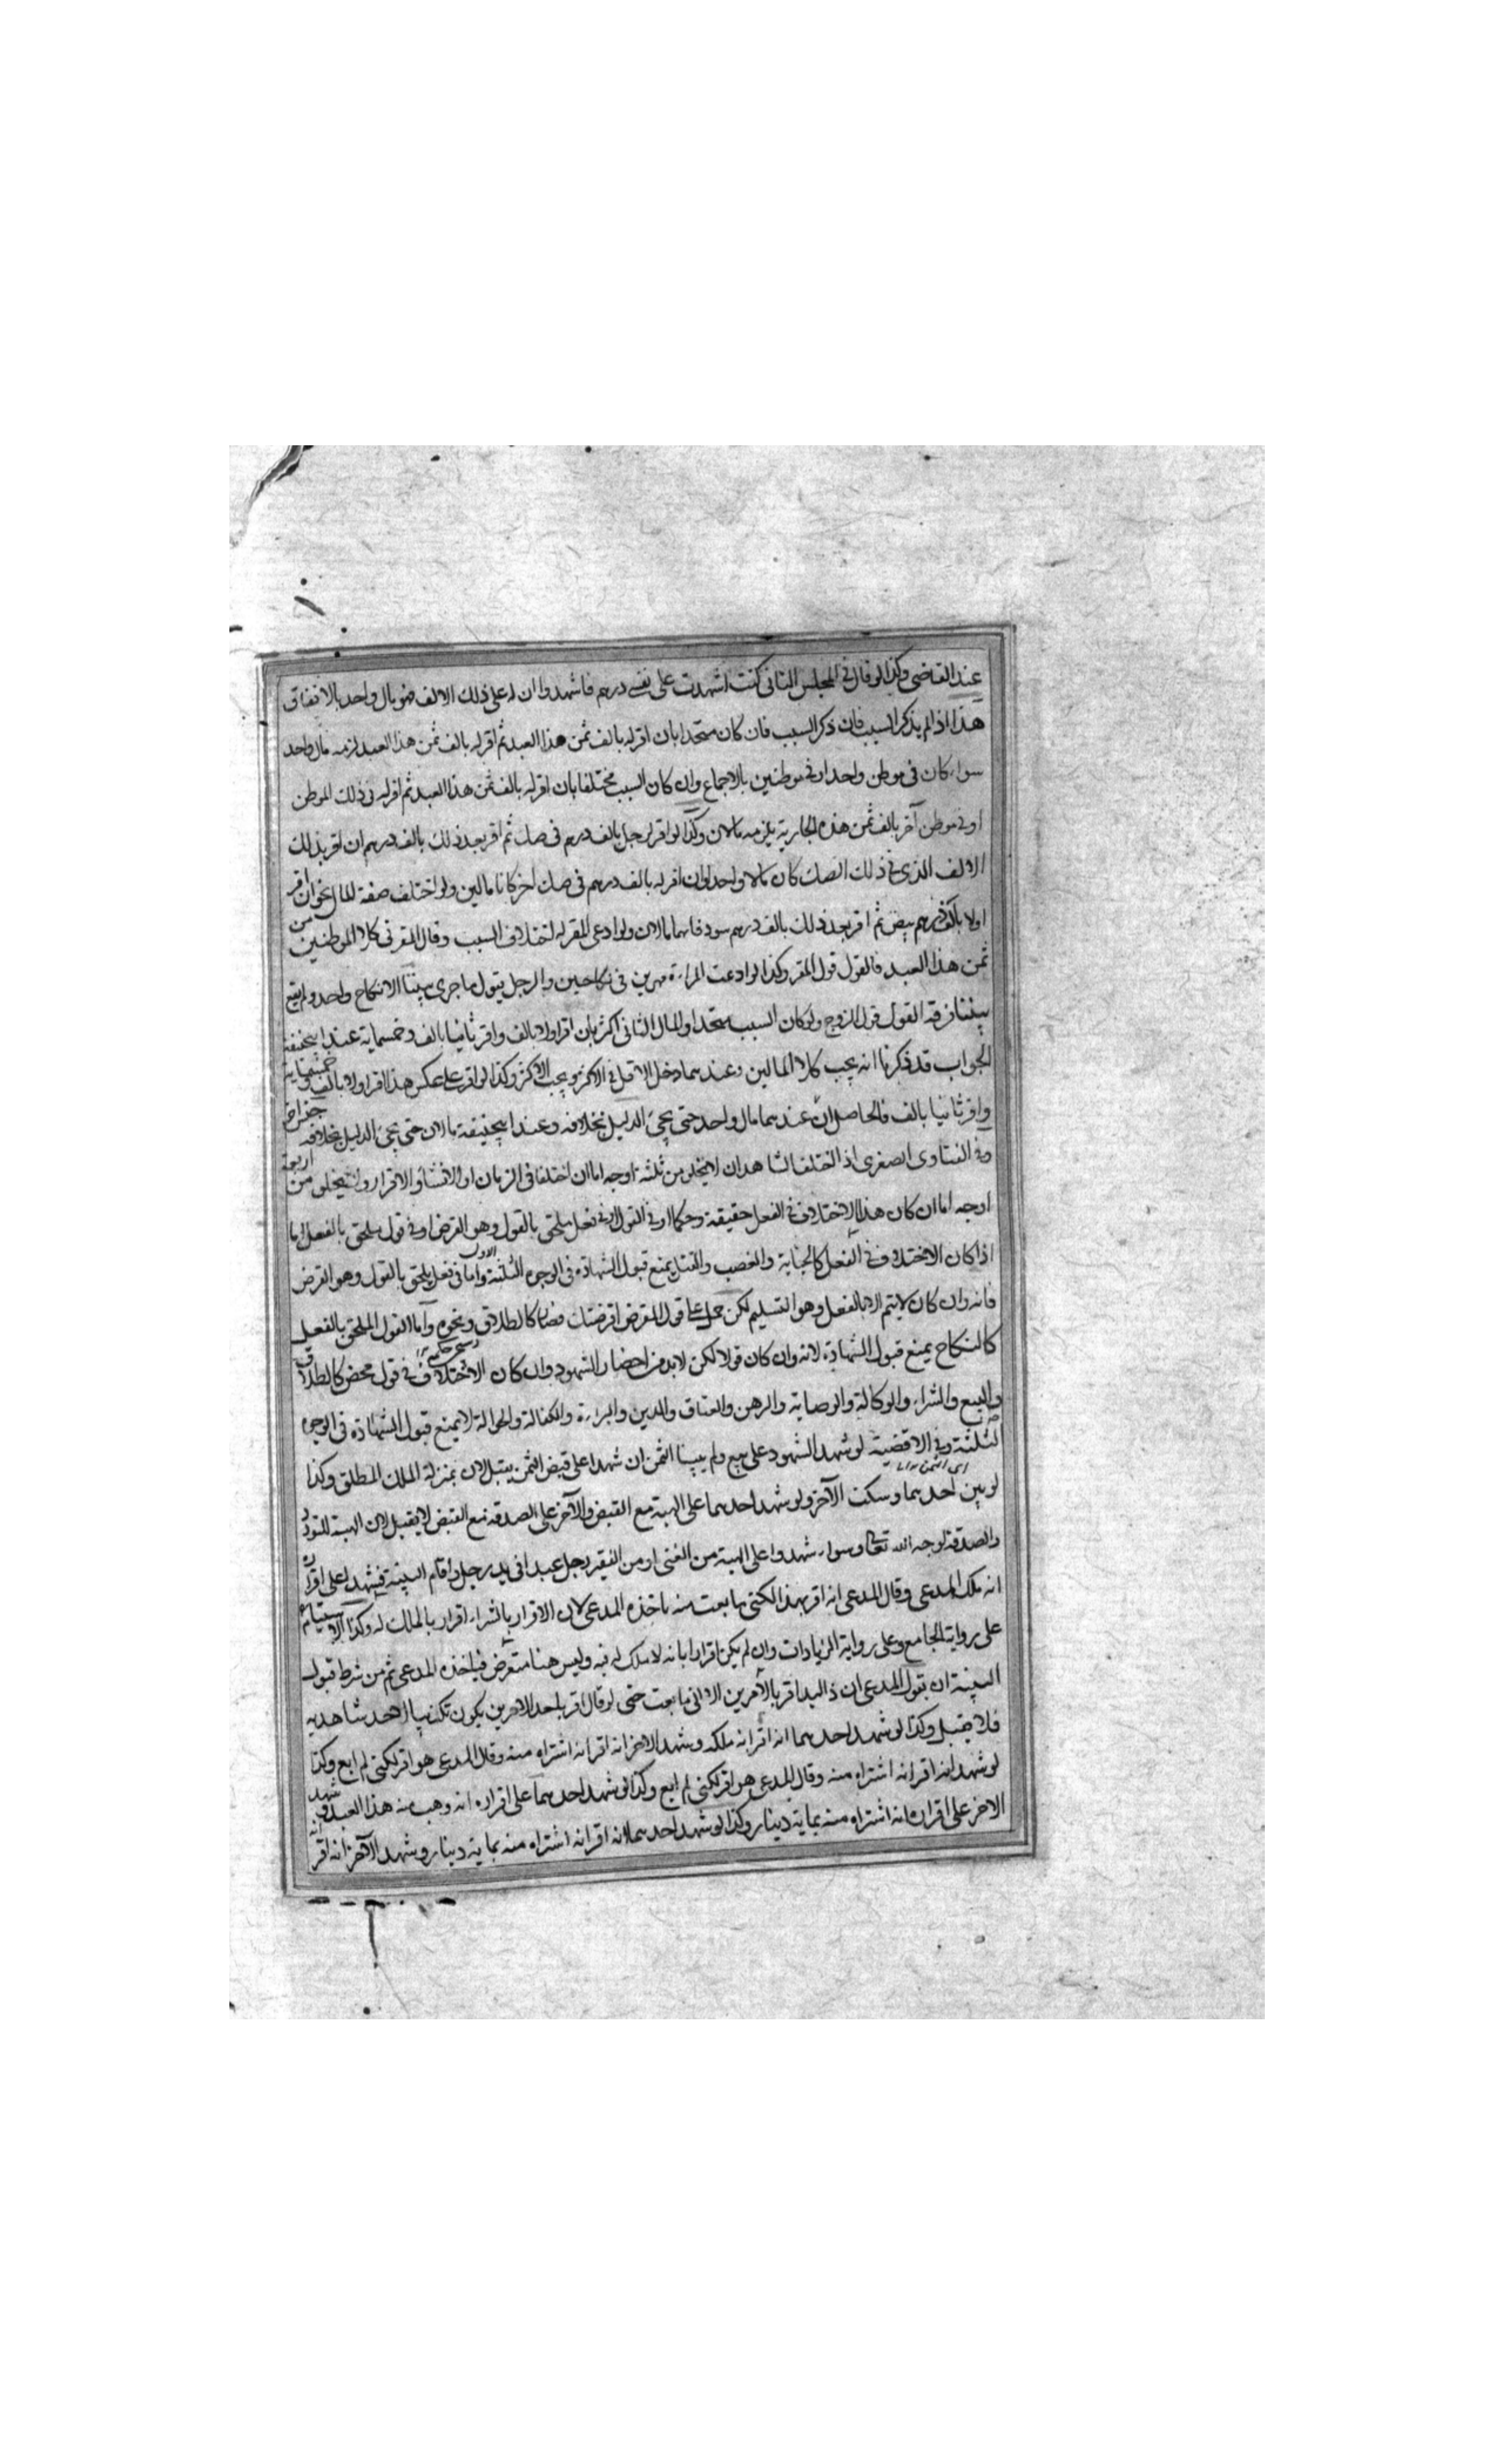 عند القاضى وكذا لو قال فى المجلس الثانى كنت اشهدت على نفسى درهم فاشهدوا ان له على ذلك الالف فهو مال واحد بالاتفاق
هذا اذا لم يذكر السبب فان ذكر السبب فان كان متحدا بان اقر له بالف ثمن هذا العبد ثم اقر له بالف ثمن هذا العبد لزمه مال واحد
سواء كان فى موطن واحد او فى موطنين بالاجماع وان كان السبب مختلفا بان اقر له بالف ثمن هذا العبد ثم اقر له فى ذلك الموطن
او فى موطن آخر بالف ثمن هذه الجارية يلزمه مالان وكذا لو اقر لرجل بالف درهم فى صك ثم اقر بعد ذلك بالف درهم ان اقر بذلك
الالف الذى فى ذلك الصك كان مالا واحدا وان اقر له بالف درهم فى صك اخر كانا مالين ولو اختلف صفة المال نحو ان اقر
اولا بالف درهم بيض ثم اقر بعد ذلك بالف درهم سود فهما مالان ولو ادعى المقر له اختلاف السبب وقال المقر فى كلا الموطنين من
ثمن هذا العبد فالقول قول المقر وكذا لو ادعت المراءة مهرين فى نكاحين والرجل يقول ما جرى بيننا الا نكاح واحد ولم يقع
بيننا فرقة القول قول الزوج ولو كان السبب متحدا والمال الثانى اكثر بان اقر اولا بالف واقر ثانيا بالف وخمسماية عند ابيحنيفة
الجواب قد ذكرنا انه يجب كلا المالين وعندهما دخل الاقل فى الاكثر ويجب الاكثر وكذا لو اقر على عكس هذا اقر اولا بالف وخمسماية
واقر ثانيا بالف فالحاصل ان عندهما مال واحد حتى يجئ الدليل بخلافه وعند ابيحنيفة مالان حتى يجئ الدليل بخلافه
وفى الفتاوى الصغرى اذا اختلف الشاهدان لا يخلو من ثلثة اوجه اما ان اختلفا فى الزمان او الانشاء والاقرار ولا يخلو من اربعة
اوجه اما ان كان هذا الاختلاف فى الفعل حقيقة وحكما او فى القول او فى فعل ملحق بالقول وهو القرض او فى قول ملحق بالفعل اما
اذا كان الاختلاف فى الفعل كالجناية والغصب والقتل يمنع قبول الشهادة فى الوجوه الثلثة واما فى فعل ملحق بالقول وهو القرض
فانه وان كان لا يتم الا بالفعل وهو التسليم لكن حمل على قول المقرض اقرضتك فصار كالطلاق ونحوه واما القول الملحق بالفعل
كالنكاح يمنع قبول الشهادة لانه وان كان قولا لكن لابد من احضار الشهود وان كان الاختلاف فى قول محض كالطلاق
والبيع والشراء والوكالة والوصاية والرهن والعتاق والدين والبراءة والكفالة والحوالة لا يمنع قبول الشهادة فى الوجوه
الثلثة وفى الاقضية لو شهد الشهود على بيع ولم يبينا الثمن ان شهدا على قبض الثمن يقبل لان بمنزلة الملك المطلق وكذا
لو بين احدهما وسكت الآخر ولو شهد احدهما على الهبة مع القبض والآخر على الصدقة مع القبض لا يقبل لان الهبة للتودد
والصدقة لوجه الله تعالى وسواء شهدوا على الهبة من الغنى او من الفقير رجل عبدا فى يد رجل واقام البينة فشهدا على اقراره
انه ملك المدعى وقال المدعى انه اقر بهذا لكنى ما بعت منه ياخذه المدعى لان الاقرار بالشراء اقرار بالملك له وكذا الاستيام
على رواية الجامع وعلى رواية الزيادات وان لم يكن اقرارا بانه لا ملك له فيه وليس هنا متعرض فياخذه المدعى ثم من شرط قبول
البينة ان يقول المدعى ان ذا اليد اقر بالامرين الا انى ما بعت حتى لو قال اقر باحد الامرين يكون تكذيبا لاحد شاهديه
فلا يقبل وكذا لو شهد احدهما انه اقر انه ملكه وشهد الاخر انه اقر انه اشتراه منه وقال المدعى هو اقر لكنى لم ابع وكذا
لو شهد انه اقر انه اشتراه منه وقال المدعى هو اقر لكنى لم ابع وكذا لو شهد احدهما على اقراره انه وهب منه هذا العبد وشهد
الاخر على اقراره انه اشتراه منه بماية دينار وكذا لو شهد احدهما انه اقر انه اشتراه منه بماية دينار وشهد الآخر انه اقر